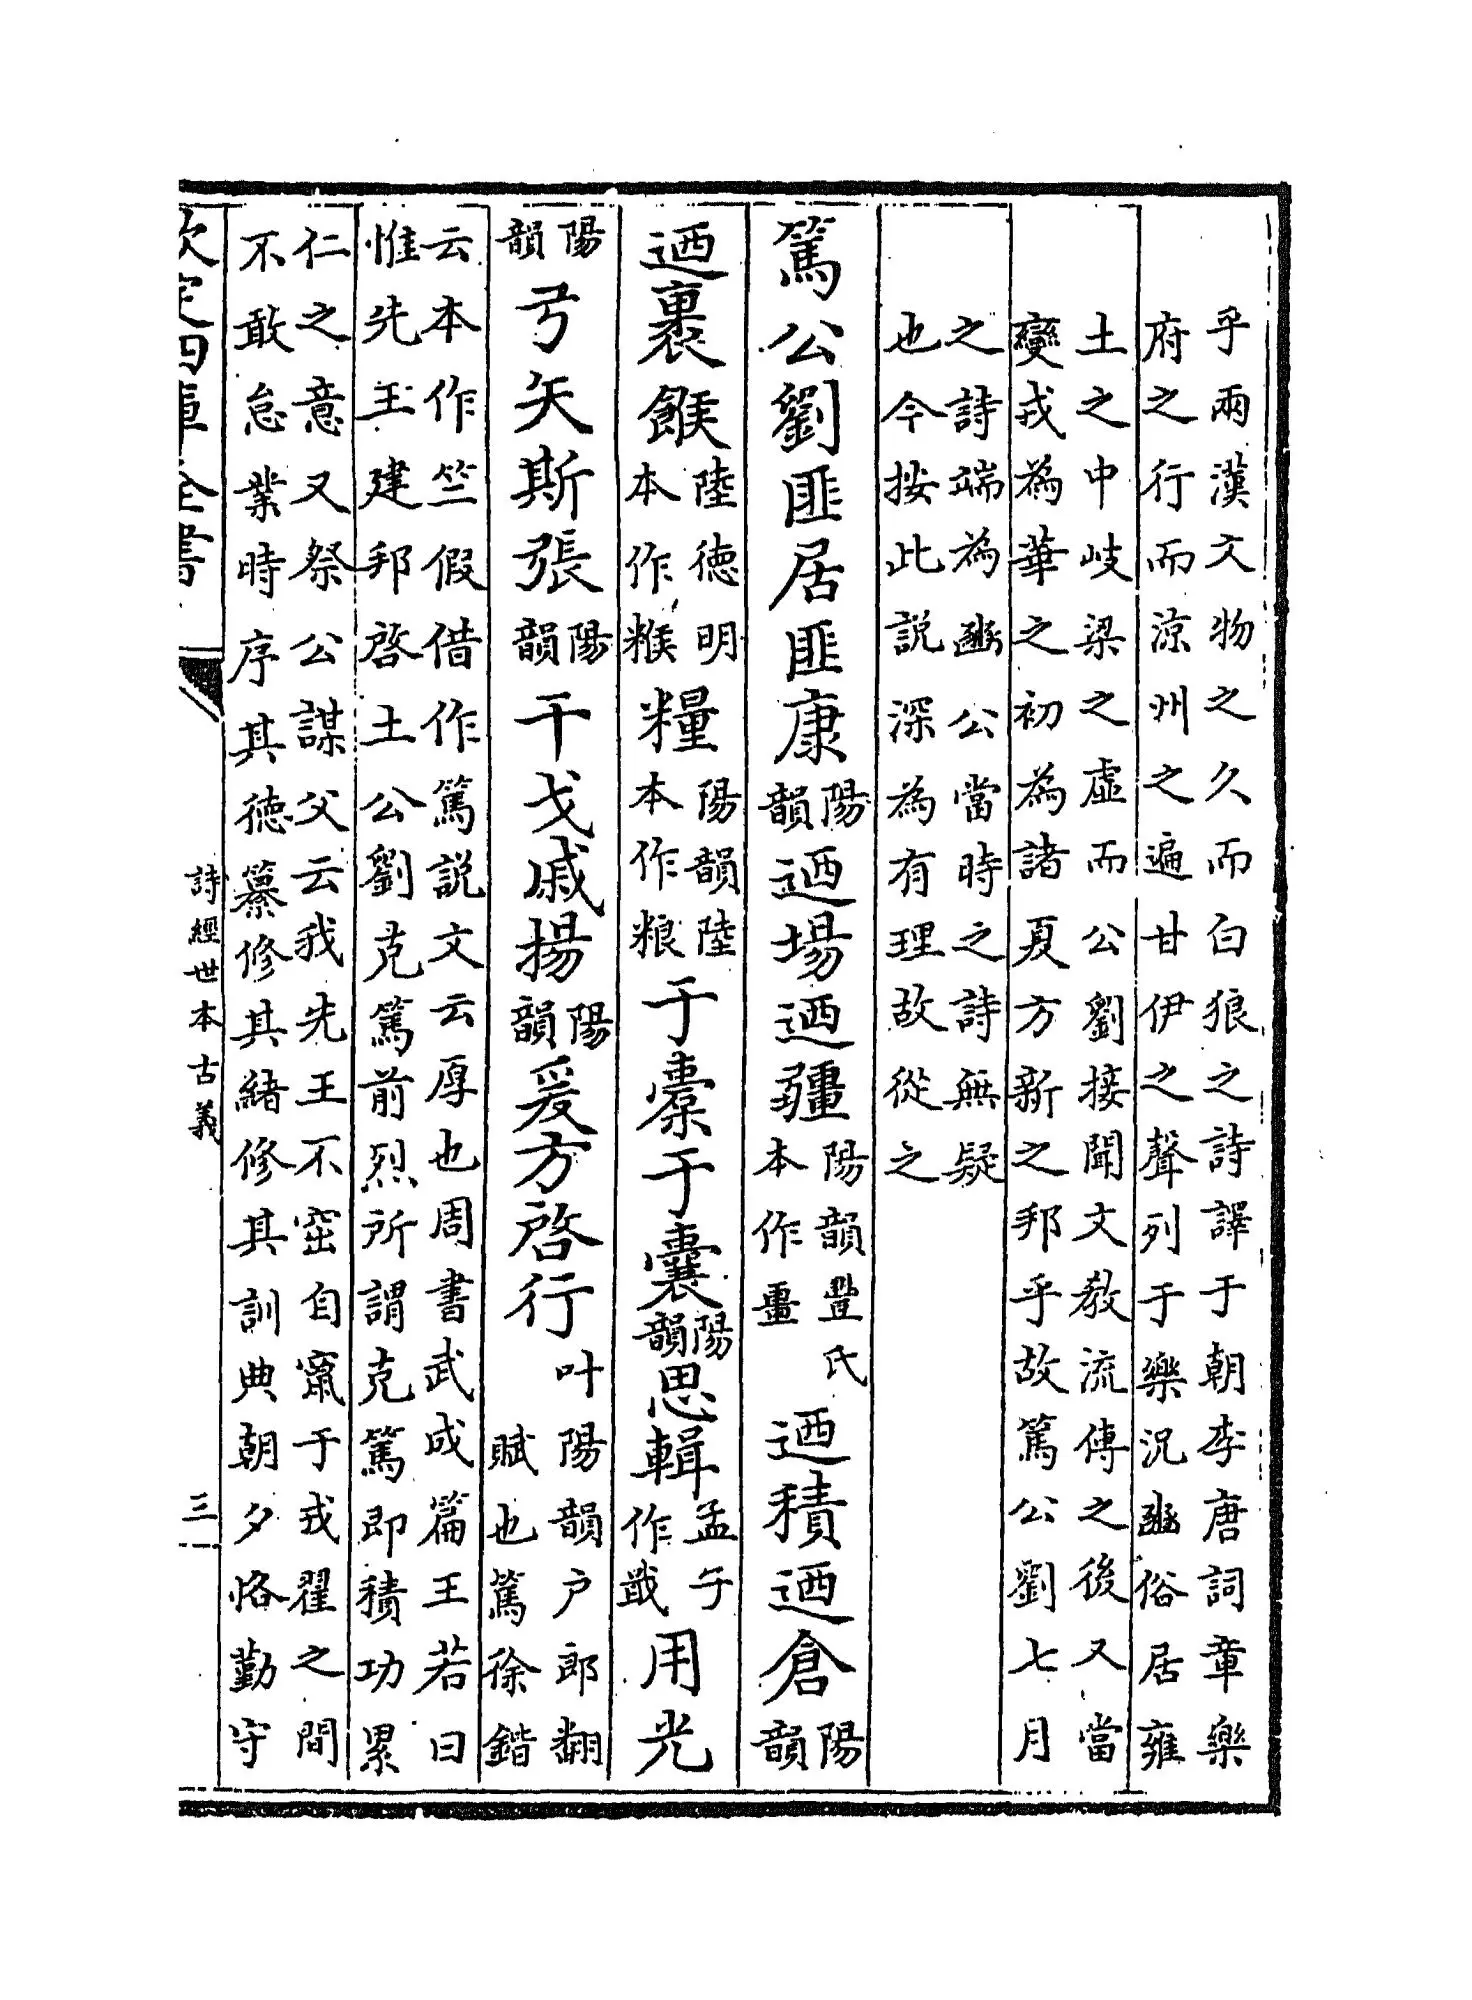 乎兩漢文物之久而白狼之詩譯于朝李唐詞章樂
府之行而涼州之遍甘伊之聲列于樂況豳俗居雍
土之中岐梁之虛而公劉接聞文教流傳之後又當
變戎為華之初為諸夏方新之邦乎故篤公劉七月
之詩端為豳公當時之詩無疑
也今按此說深為有理故從之
篤公劉匪居匪康陽韻迺場迺疆陽韻豐氏本作畺迺積迺倉陽韻
迺裹餱陸德明本作糇糧陽韻陸本作粮于橐于囊陽韻思輯孟子作戢用光
陽韻弓矢斯張陽韻干戈戚揚陽韻爰方啓行叶陽韻戶郎翻賦也篤徐鍇
云本作竺假借作篤說文云厚也周書武成篇王若曰
惟先王建邦啓土公劉克篤前烈所謂克篤即積功累
仁之意又祭公謀父云我先王不窋自竄于戎翟之間
不敢怠業時序其德纂修其緒修其訓典朝夕恪勤守
欽定四庫全書
詩經世本古義
三